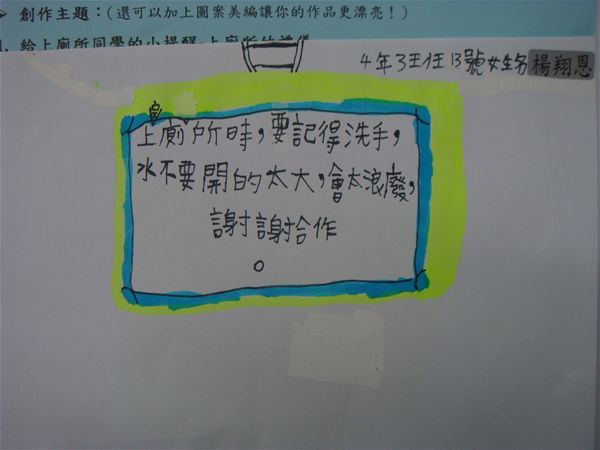 ➢ 創作主題：(還可以加上圖案美編讓你的作品更漂亮！)
給上廁所同學的小提醒,上廁所的
4年3班13號女生名楊翔恩
上廁所時，要記得洗手，
水不要開的太大，會太浪廢，
謝謝合作
。